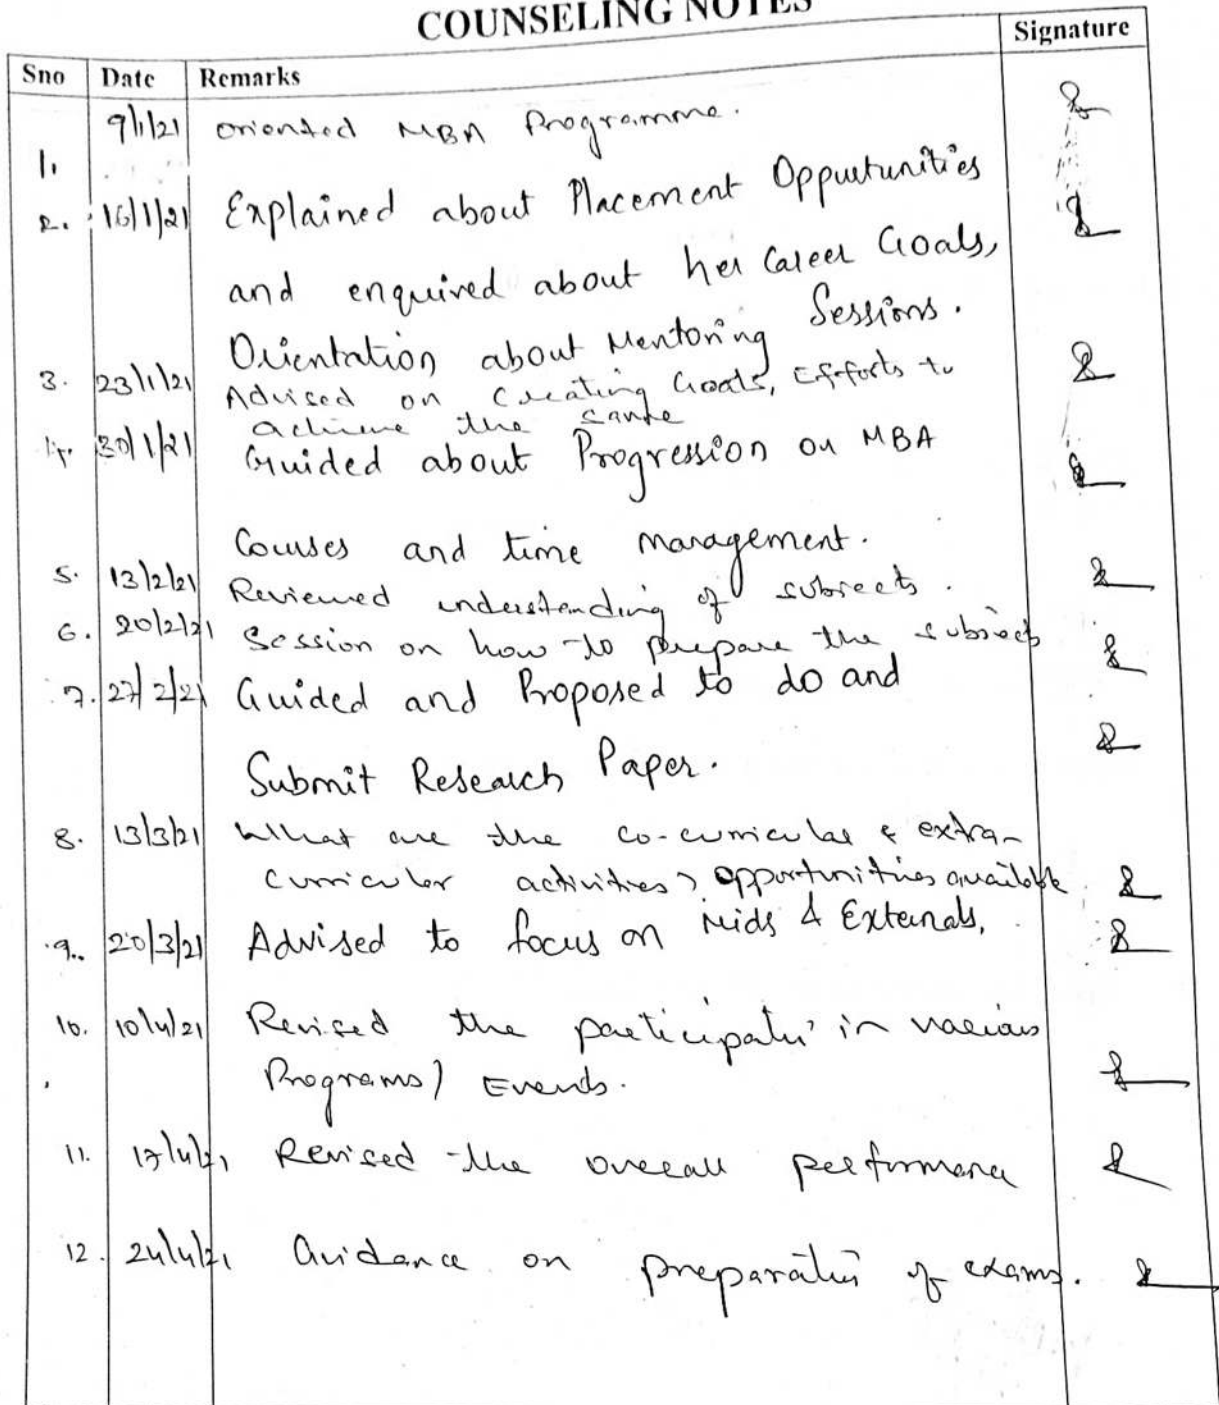 COUNSELING NOTES
Sno Date Remarks Signature
1. 9/1/21 oriented MBA Programme.
2. 16/1/21 Explained about Placement Oppurtunities
and enquired about her Career Goals,
Orientation about Mentoring Sessions.
3. 23/1/21 Advised on Creating Goals, Efforts to
achieve the same
4. 30/1/21 Guided about Progression on MBA
Courses and time management.
5. 13/2/21 Reviewed understanding of subjects.
6. 20/2/21 Session on how to prepare the subjects
7. 27/2/21 Guided and Proposed to do and
Submit Research Paper.
8. 13/3/21 What are the co-curricular & extra-
curricular activities, opportunities available
9. 20/3/21 Advised to focus on Mids & Externals.
10. 10/4/21 Revised the in various
Programs/ Events.
11. 17/4/21 Revised the overall
12. 24/4/21 Guidance on of exams.